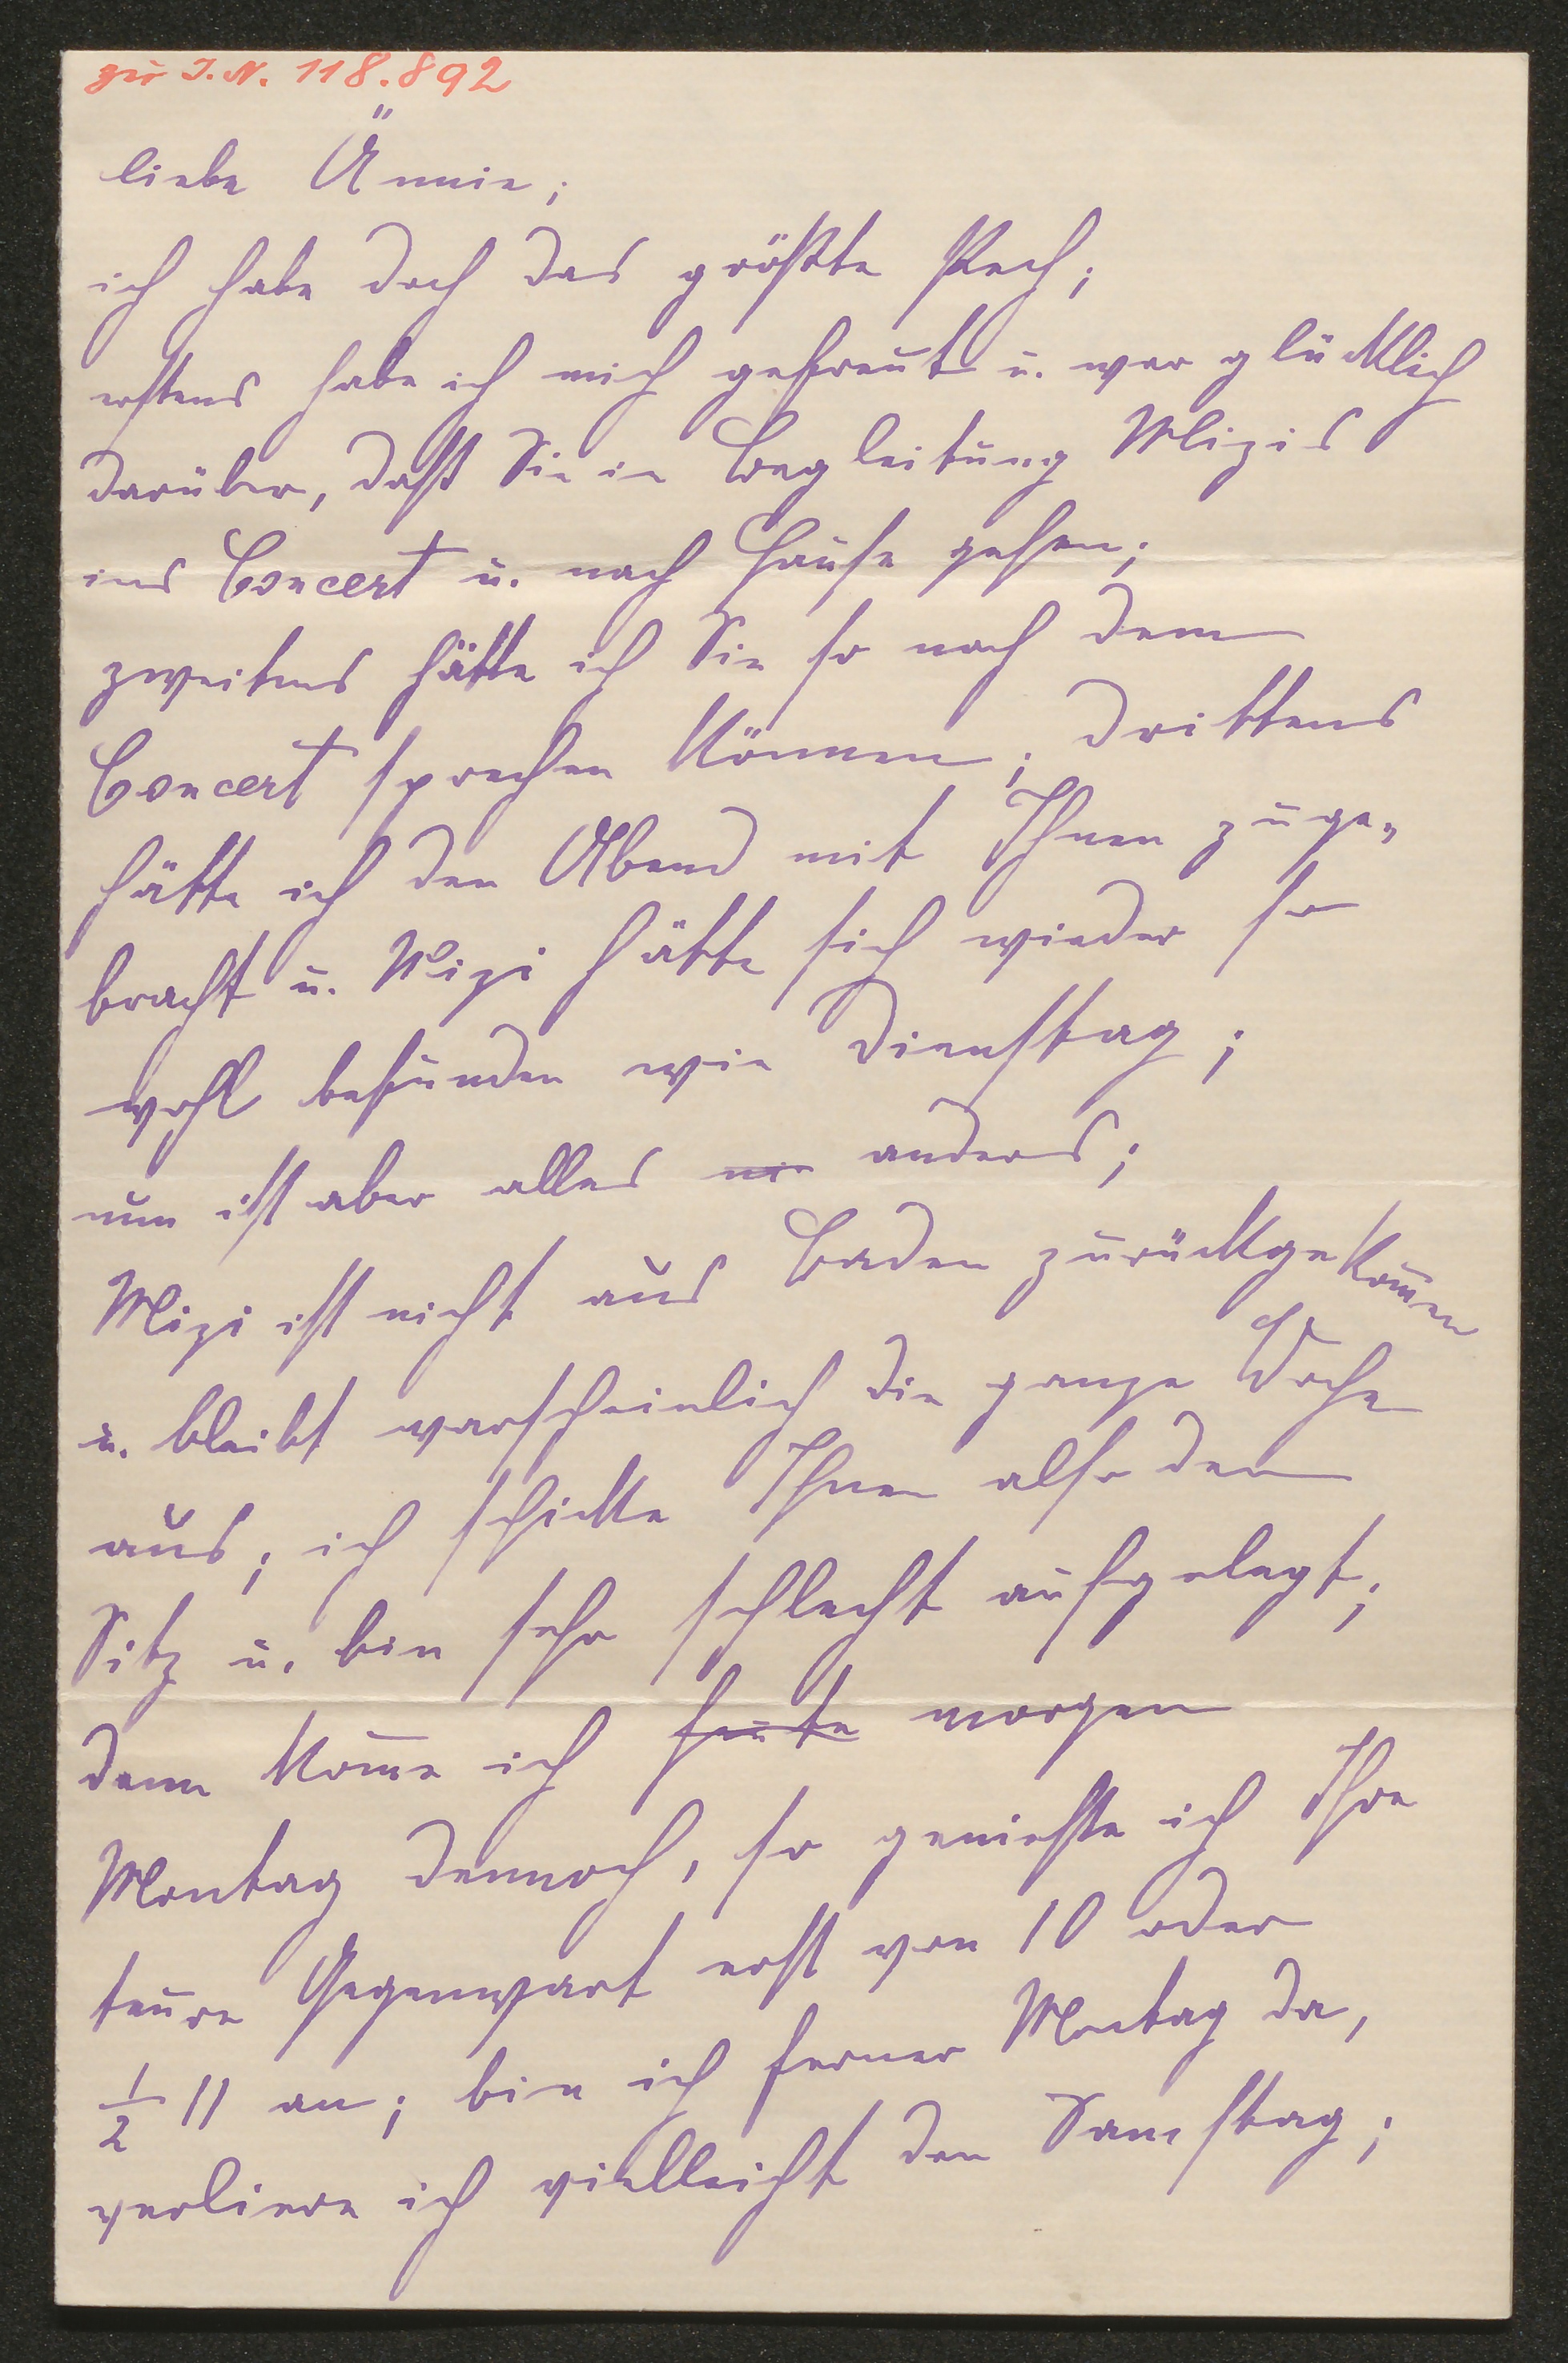 zu I.N. 118.892
liebe Ännie;
ich habe doch das größte Pech;
erstens habe ich mich gefreut u. war glücklich
darüber, daß Sie in Begleitung Mizis
ins Concert u. nach Hause gehen;
zweitens hätte ich Sie so nach dem
Concert sprechen können; drittens
hätte ich den Abend mit Ihnen zuge„
bracht u. Mizi hätte sich wieder so
wohl befunden wie Dienstag;
nun ist aber alles anders;
Mizi ist nicht aus Baden zurückgekom̄en
u. bleibt warscheinlich die ganze Woche
aus; ich schicke Ihnen also den
Sitz u. bin sehr schlecht aufgelegt;
denn kom̄e ich heute morgen
Montag dennoch, so genieße ich Ihre
teure Gegenwart erst von 10 oder
½ 11 an; bin ich ferner Montag da,
verliere ich vielleicht den Samstag;